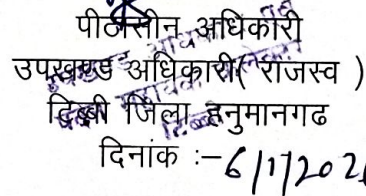 पीठासीन अधिकारी
उपखण्ड अधिकारी( राजस्व )
टिब्बी जिला हनुमानगढ
दिनांक :-6/1/202